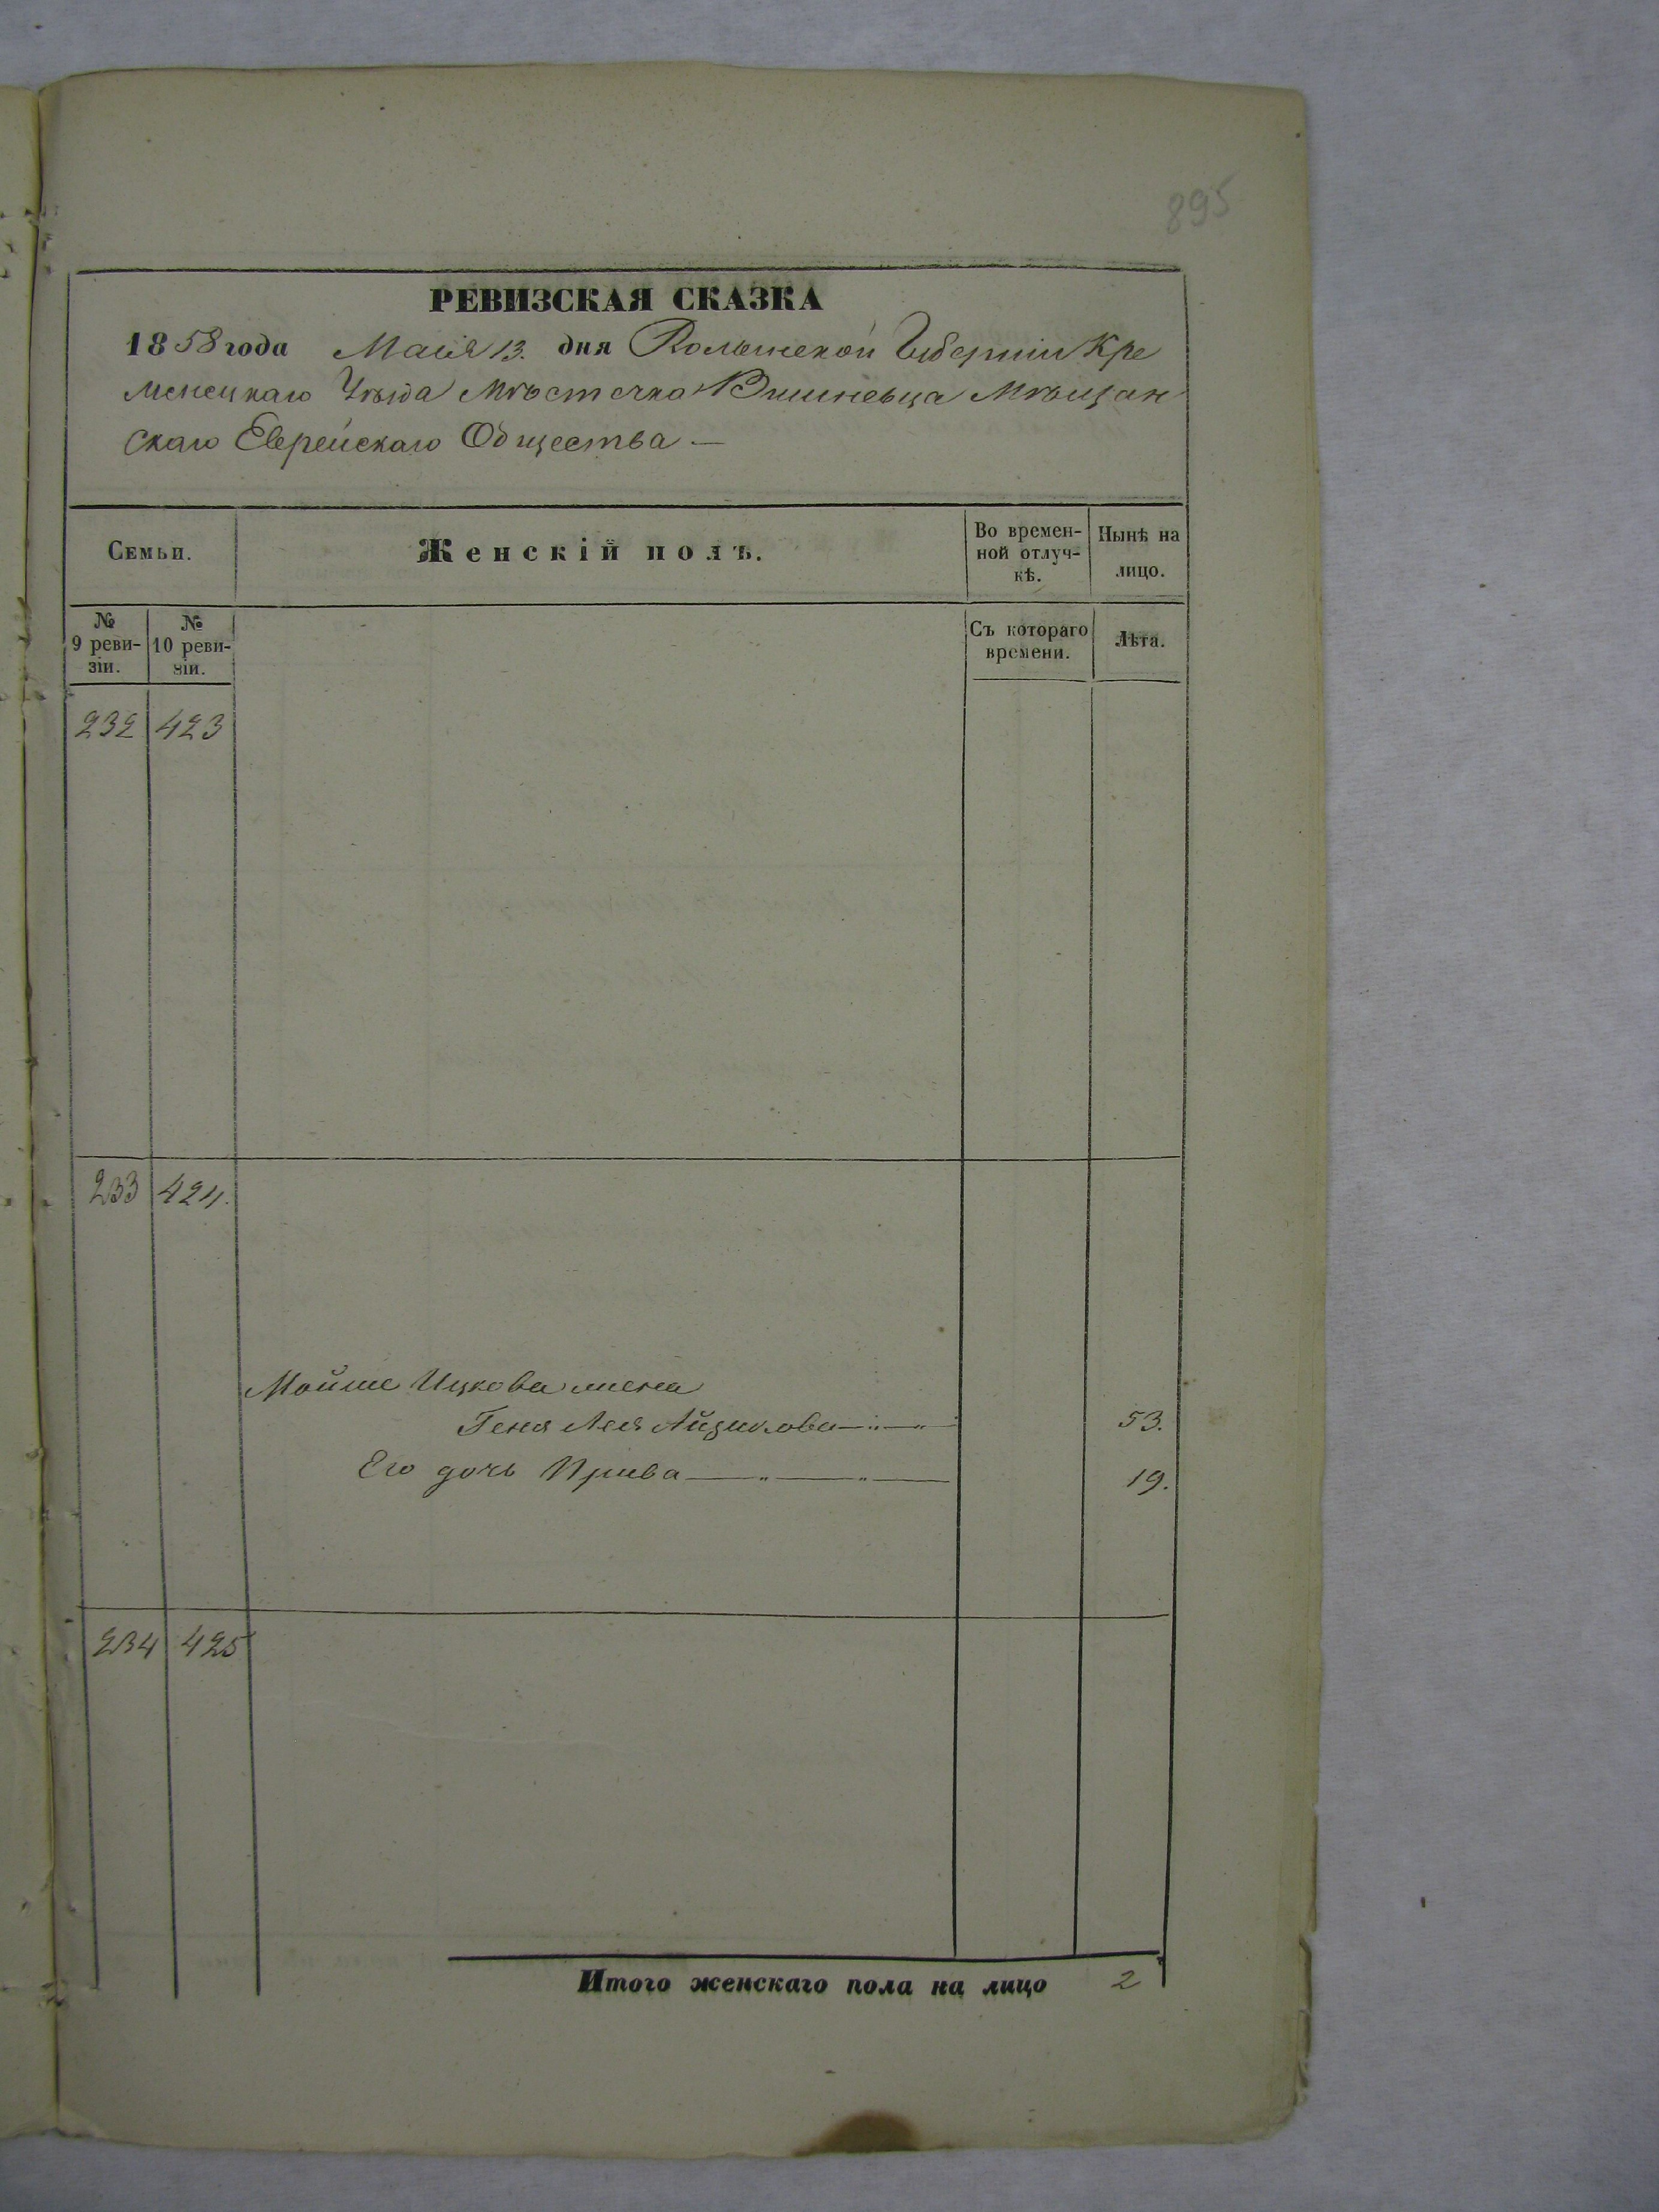 895
РЕВИЗСКАЯ СКАЗКА
1858 года Маія 13. дня Волынской Губерніи Кре
менецкаго Уѣзда Мѣстечка Вишневца Мѣщан
скаго Еврейскаго Общества —
Семьи. Женскій полъ. Во времен- Нынѣ на
ной отлуч- лицо.
кѣ.
№ № Съ котораго Лѣта.
9 реви- 10 реви- времени.
зіи. зіи.
232 423
233 424.
Мойше Ицкова жена
Геня Лея Айзикова 53.
Его дочь Прива 19.
234 425
Итого женскаго пола на лицо 2